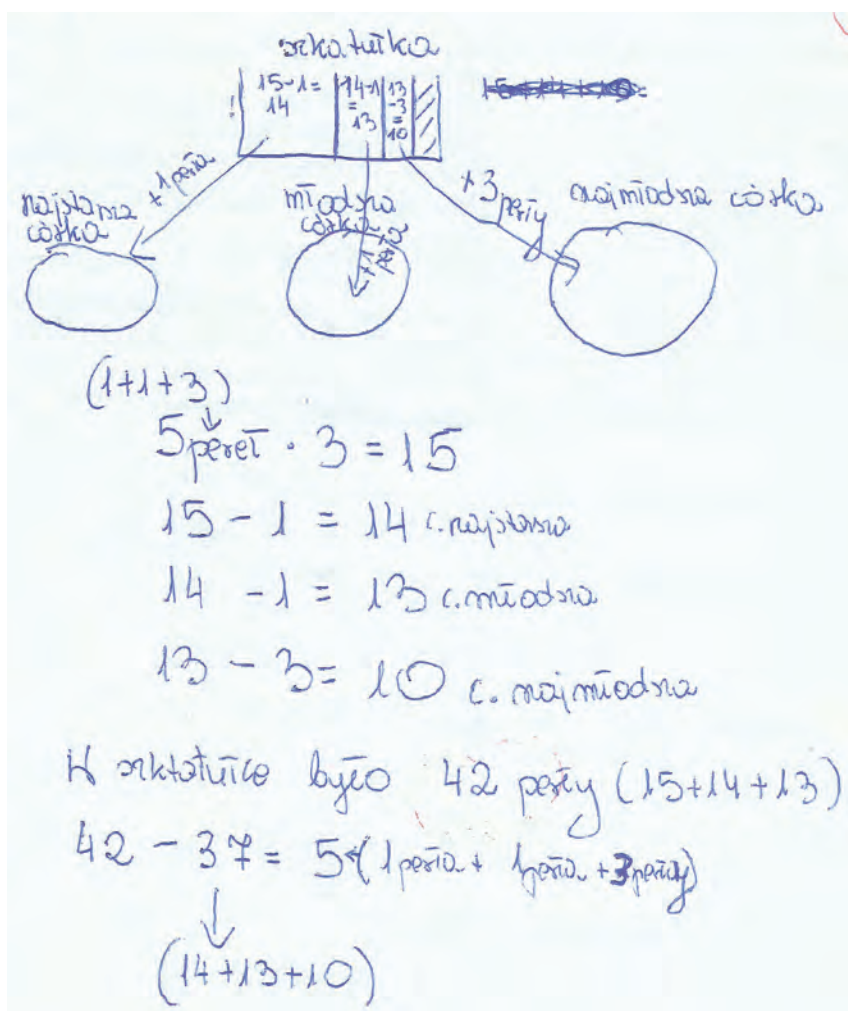 szkatułka
15-1=
14
14-1
=
13
13
-3
=
10
!
+1 perła
+1 perła
+3 perły
najstarsza
córka
młodsza
córka
najmłodsza córka
(1+1+3)
5 pereł · 3 = 15
15 - 1 = 14 c. najstarsza
14 - 1 = 13 c. młodsza
13 - 3 = 10 c. najmłodsza
W szktatułce było 42 perły (15+14+13)
42 - 37 = 5 (1 perła + 1 perła + 3 perły)
(14+13+10)